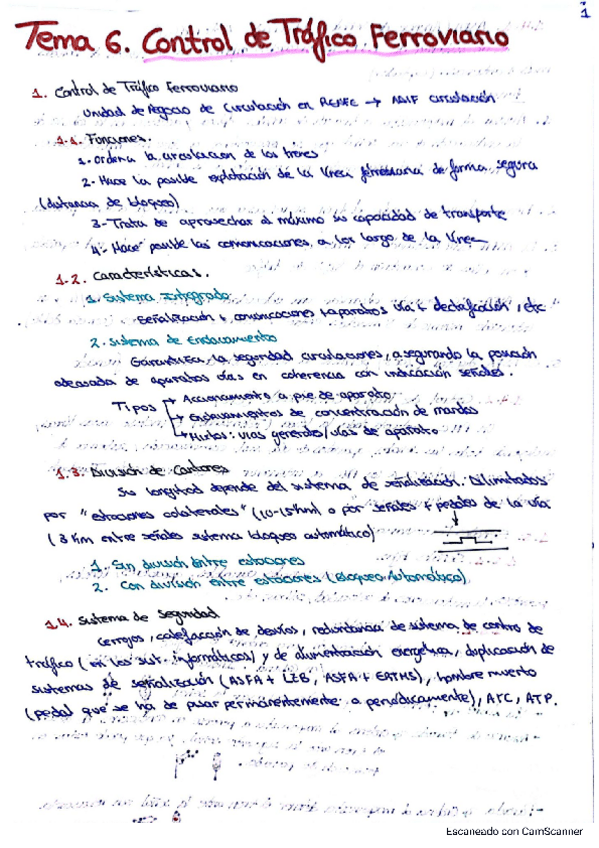 1
Tema 6. Control de Tráfico Ferroviario
1. Control de Tráfico Ferroviario
Unidad de Negocio de Circulación en RENFE → ADIF circulación
1.1. Funciones.
1. Ordena la circulación de los trenes
2. Hace la posible explotación de la línea ferroviaria de forma segura
(distancia de bloqueo)
3- Trata de aprovechar al máximo su capacidad de transporte
4- Hace posible las comunicaciones a los largo de la línea
1.2. Características.
1. Sistema Integrado
Señalización + comunicaciones + aparatos vía + electrificación, etc
2. Sistema de Enclavamiento
Garantizan la seguridad circulaciones, asegurando la posición
adecuada de aparatos vías en coherencia con indicación señales.
Tipos → Accionamiento a pie de aparato
→ Enclavamientos de concentración de mandos
→ Mixtos: vías generales/vías de aparato
1.3. División de Cantones
Su longitud depende del sistema de señalización. Dilimitados
por "estaciones colaterales" (10-15 km) o por señales + pedales de la vía
(3 km entre señales sistema bloqueo automático)
1. Sin división entre estaciones
2. Con división entre estaciones (Bloqueo Automático)
1.4. Sistema de Seguridad
Cerrojos, calefacción de desvíos, redundancia de sistema de control de
tráfico (en los sist. informáticos) y de alimentación energética, duplicación de
sistemas de señalización (ASFA + LZB, ASFA + ERTMS), hombre muerto
(pedal que se ha de pusar permanentemente o periódicamente), ATC, ATP.
Escaneado con CamScanner